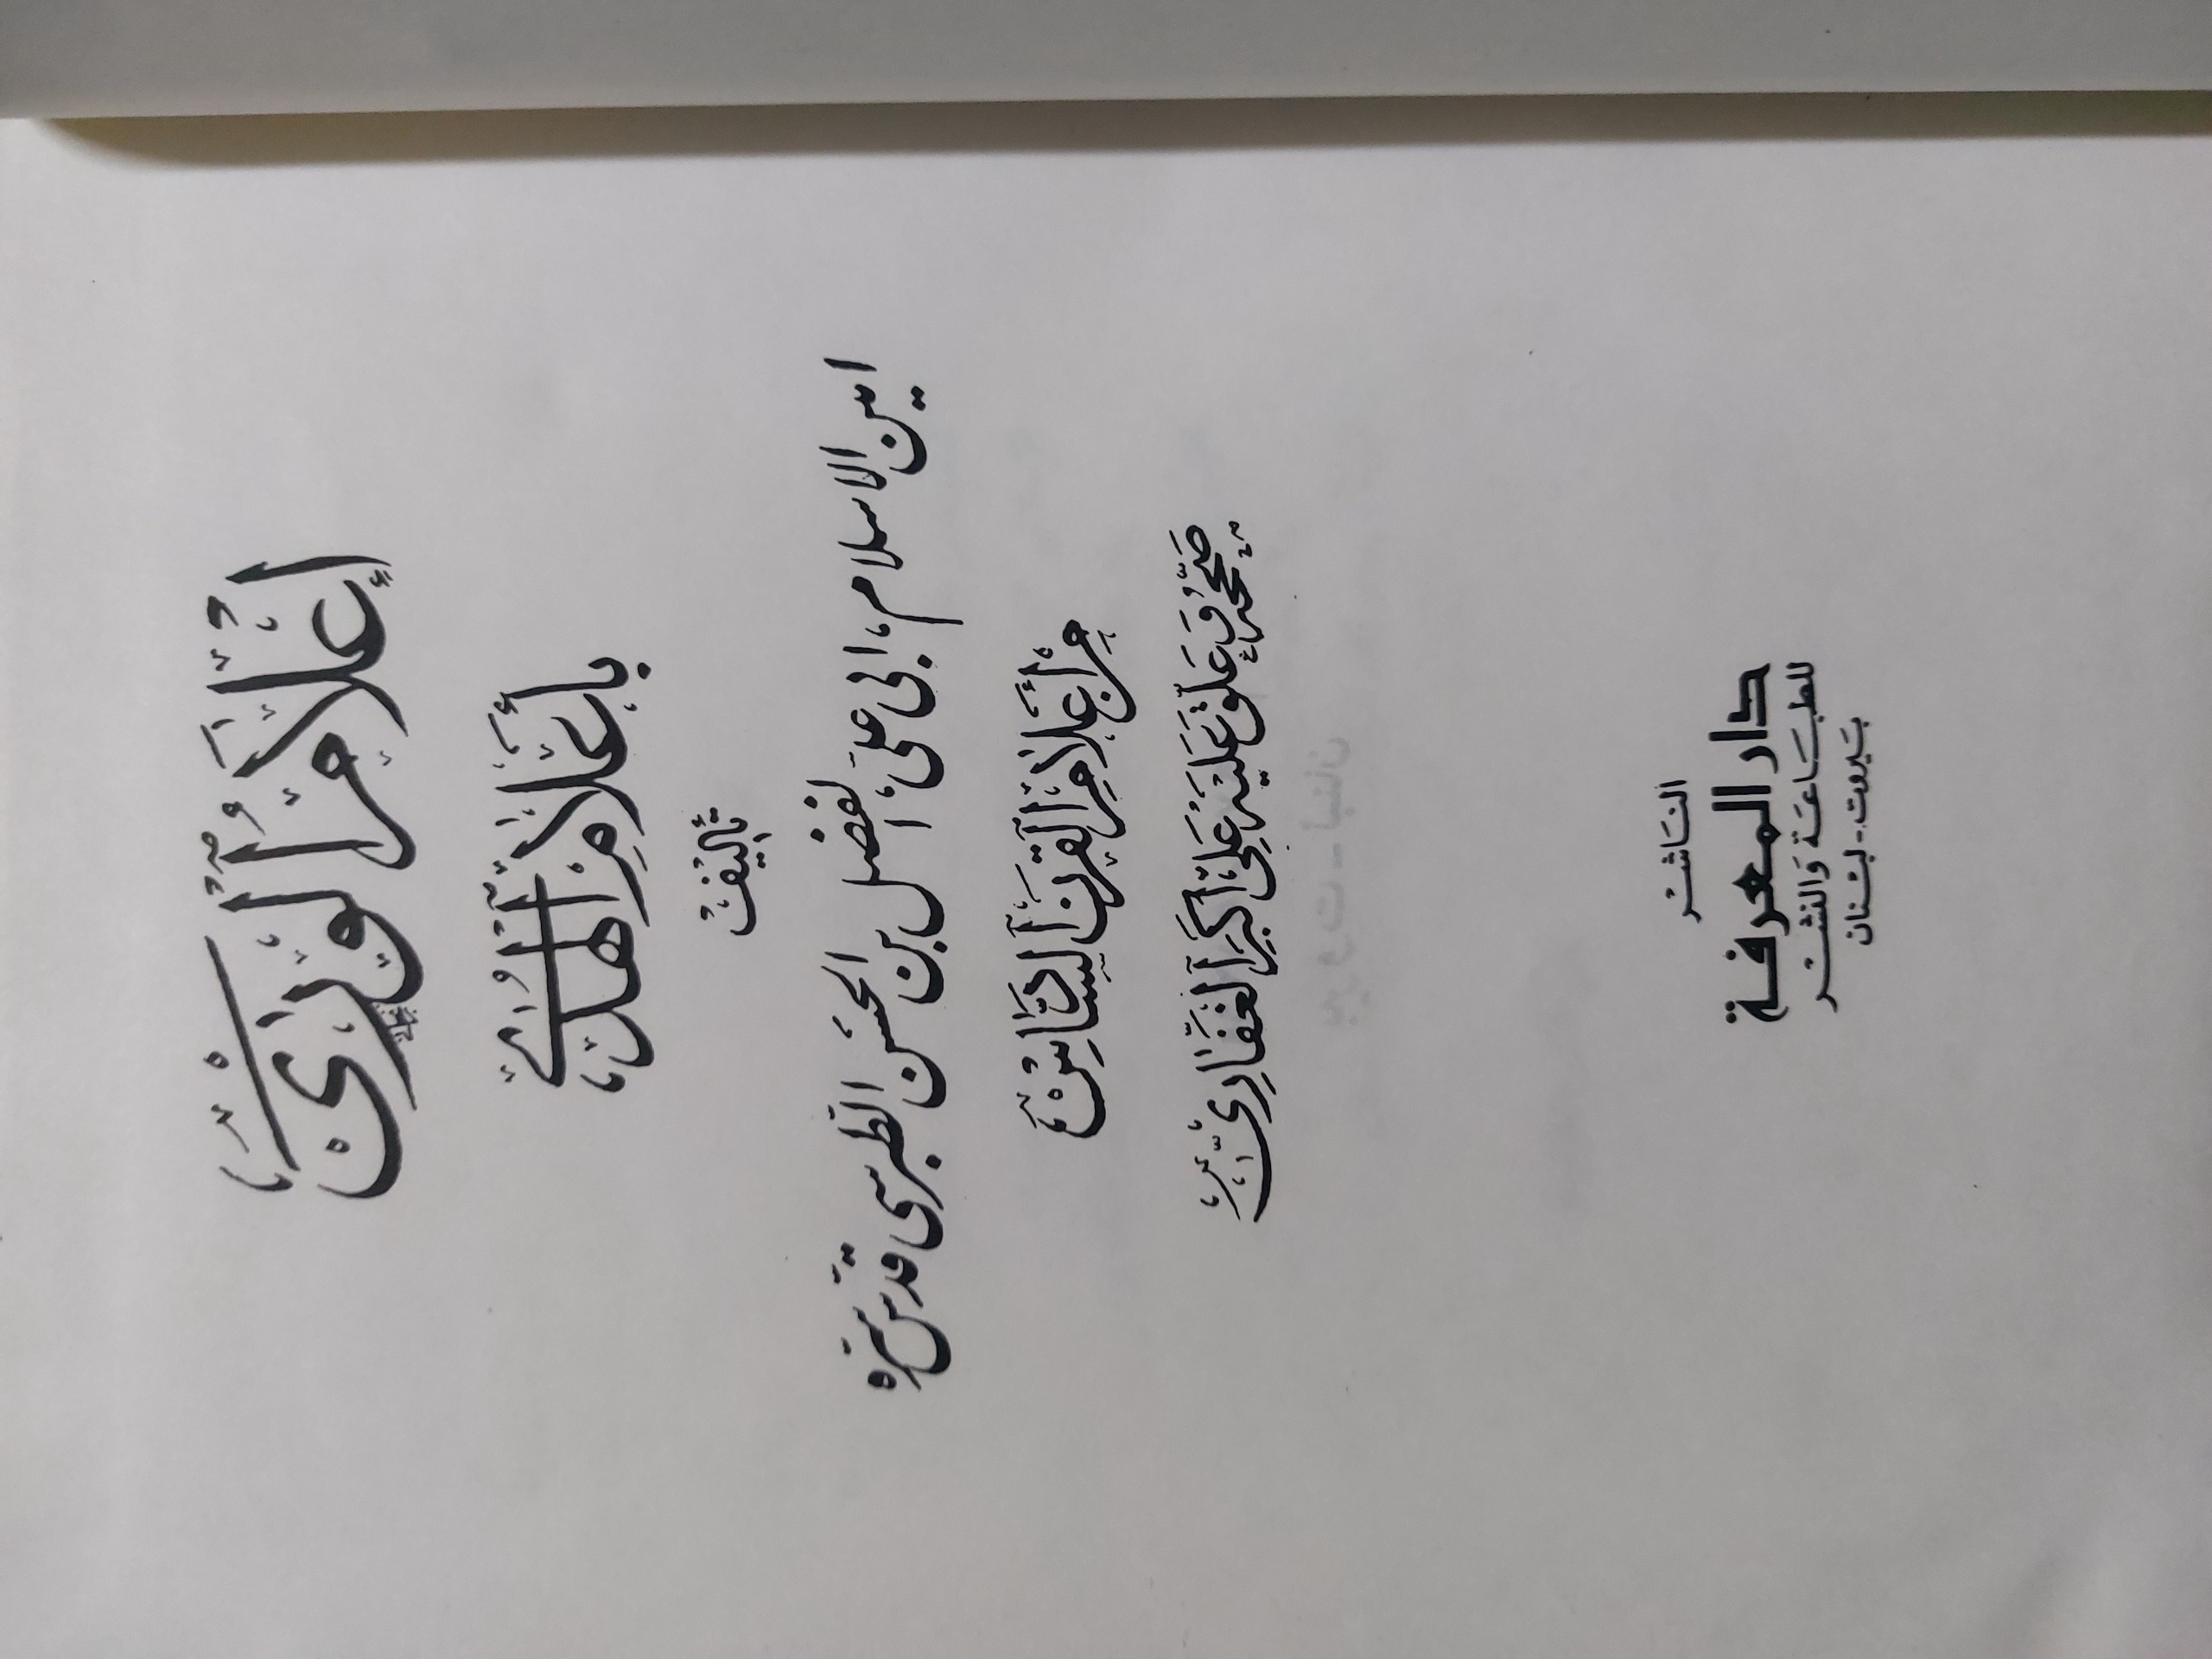 إعلام الورى
بأعلام الهدى
تأليف
امين الاسلام، ابى على، الفضل بن الحسن الطبرسى قدس سره
من أعلام القرن السادس
صححه وعلق عليه على اكبر الغفاري
الناشر
دار المعرفة
للطباعة والنشر
بيروت - لبنان